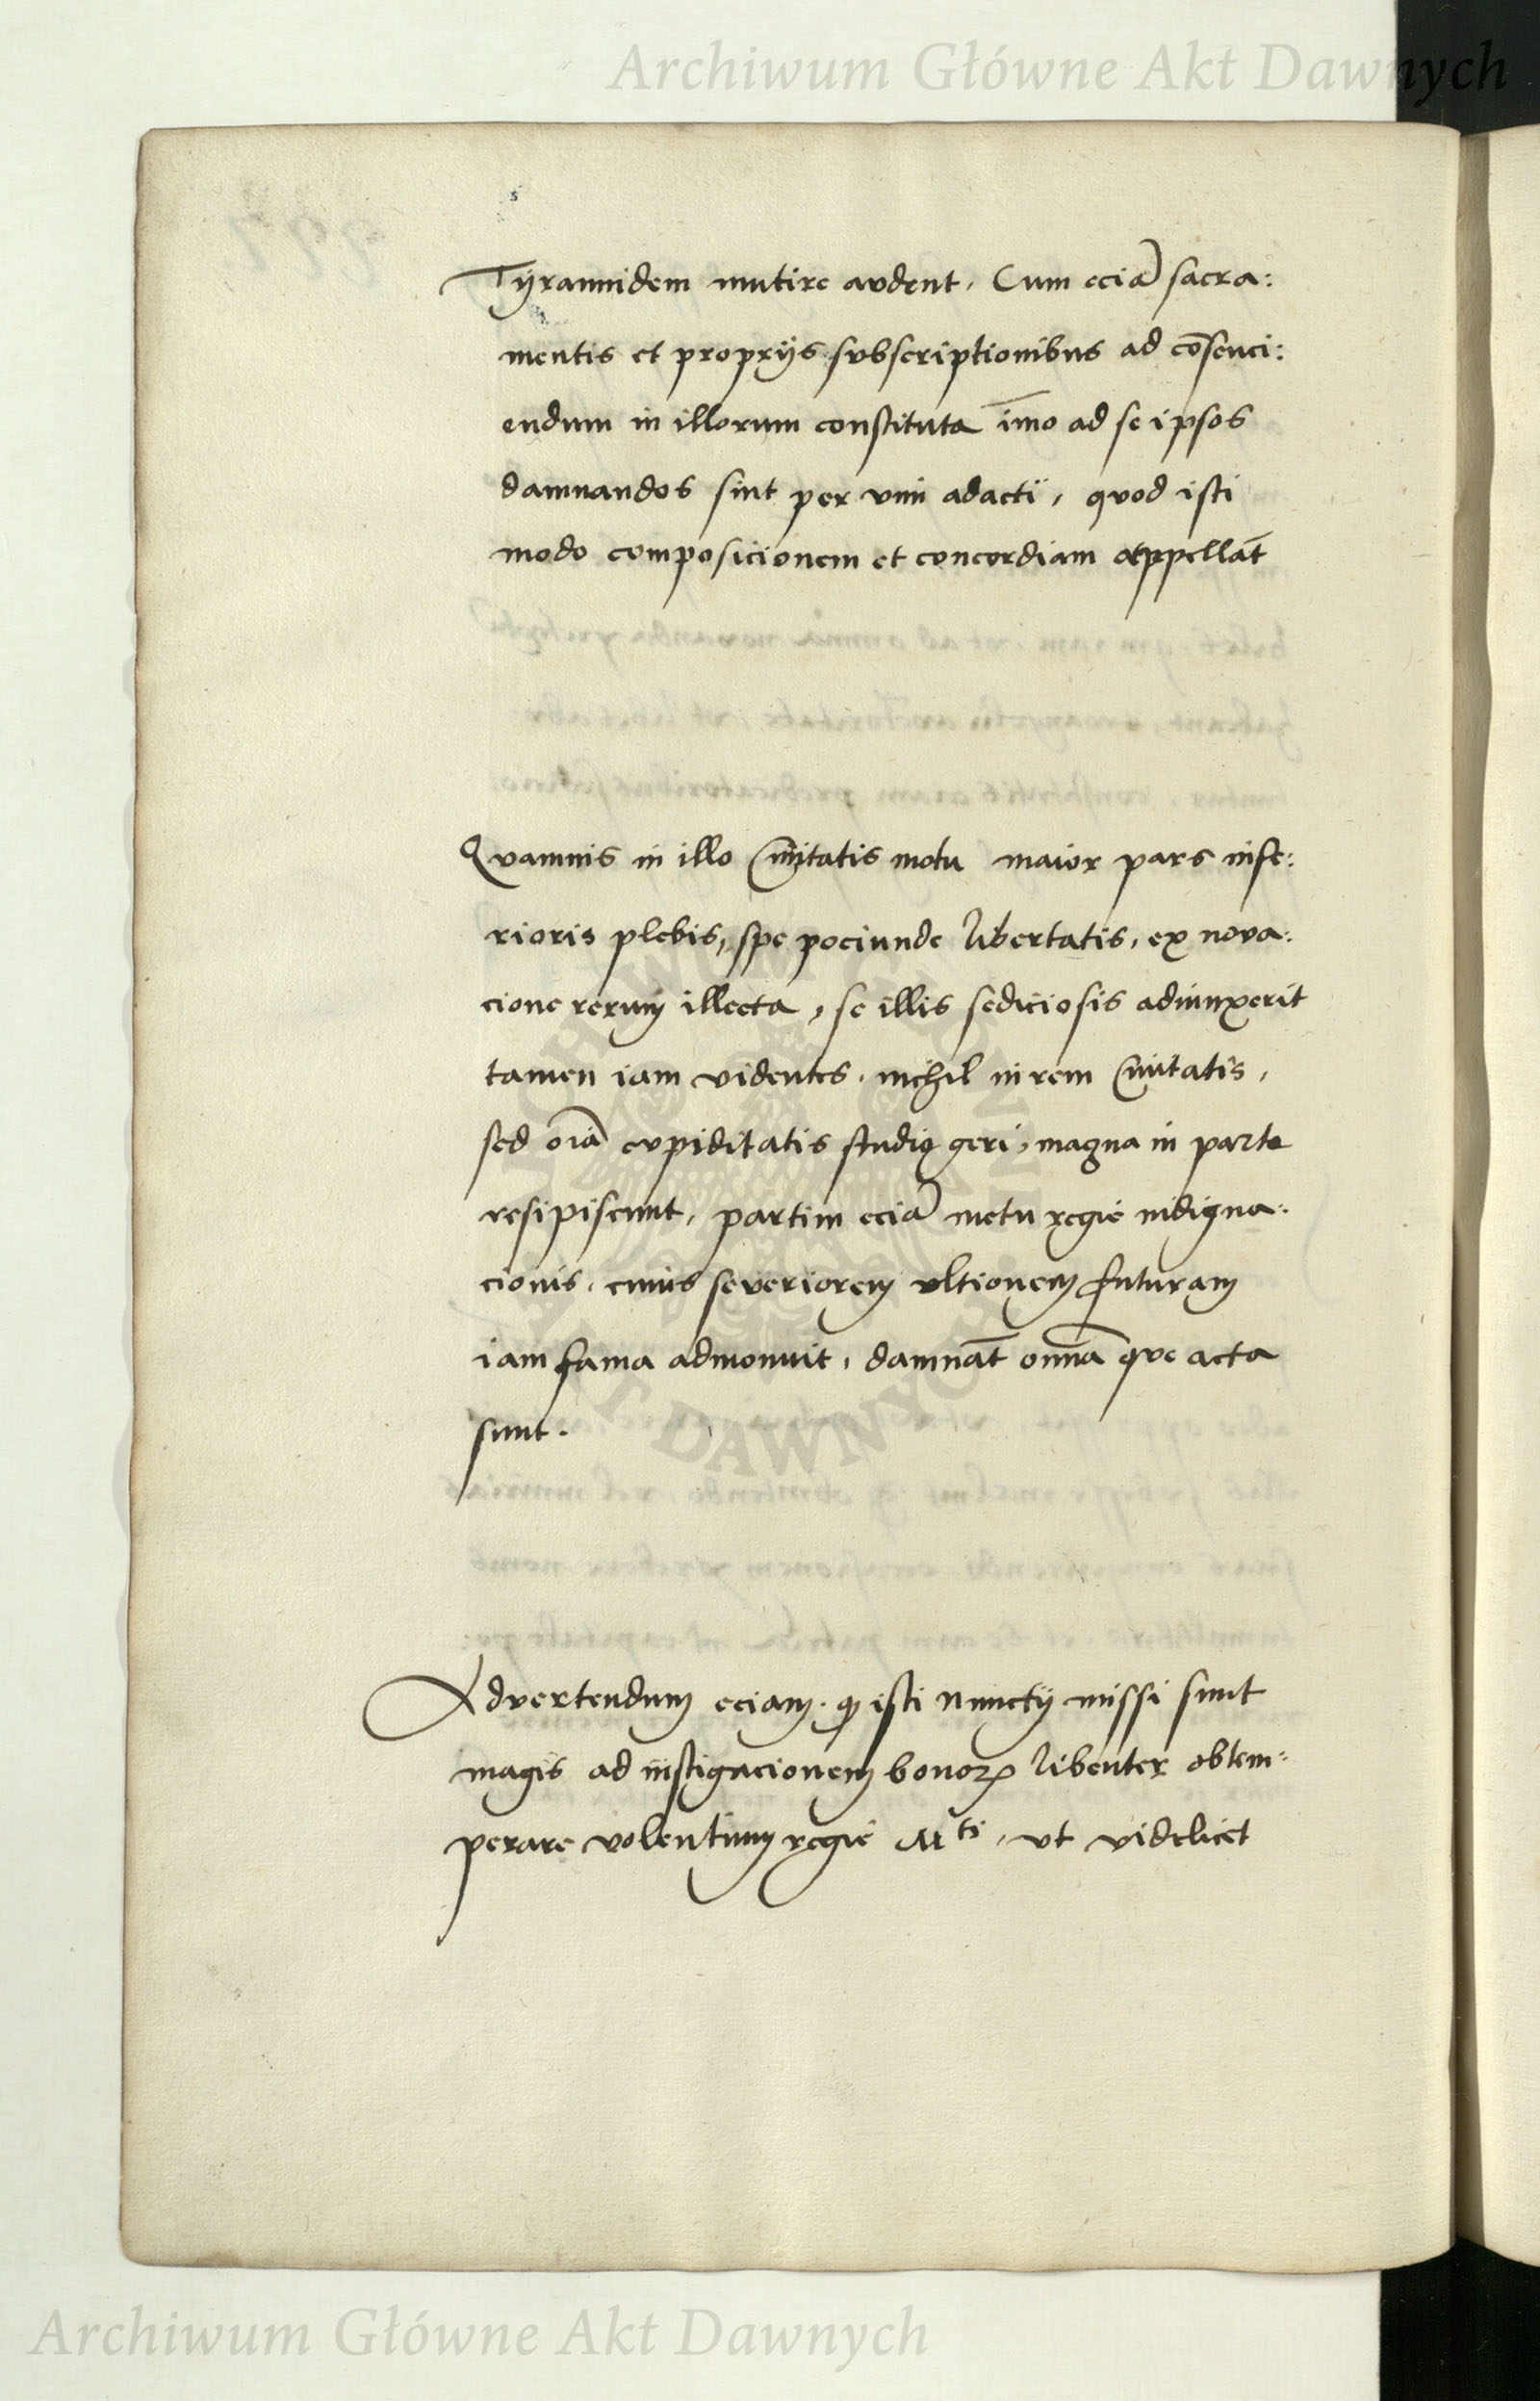 Archiwum Główne Akt Dawnych
Tÿrannidem mutire audent, Cum eciā sacra:
mentis et proprÿs subscriptionibus ad cōsenci:
endum in illorum constituta īmo ad se ipsos
damnandos sint per vim adacti, quod isti
modo composicionem et concordiam appellāt
Quamuis in illo Ciuitatis motu maior pars infe:
rioris plebis, spe pociunde libertatis, ex nova:
cione rerum illecta, se illis sediciosis adiunxerit
tamen iam videntes, nichil in rem Ciuitatis,
sed oīa cupiditatis studio geri, magna in parte
resipiscunt, partim eciā metu regie indigna:
cionis, cuius severiorem ultionem futuram
iam fama admonuit, damnāt omnā que acta
sunt.
Advertendum eciam, qđ isti nunctÿ missi sunt
magis ad instigacionem bonoꝝ libenter obtem:
perare volentium regie M^ti, ut videlicet
ARCHIWUM GŁÓWNE
AKT DAWNYCH
Archiwum Główne Akt Dawnych